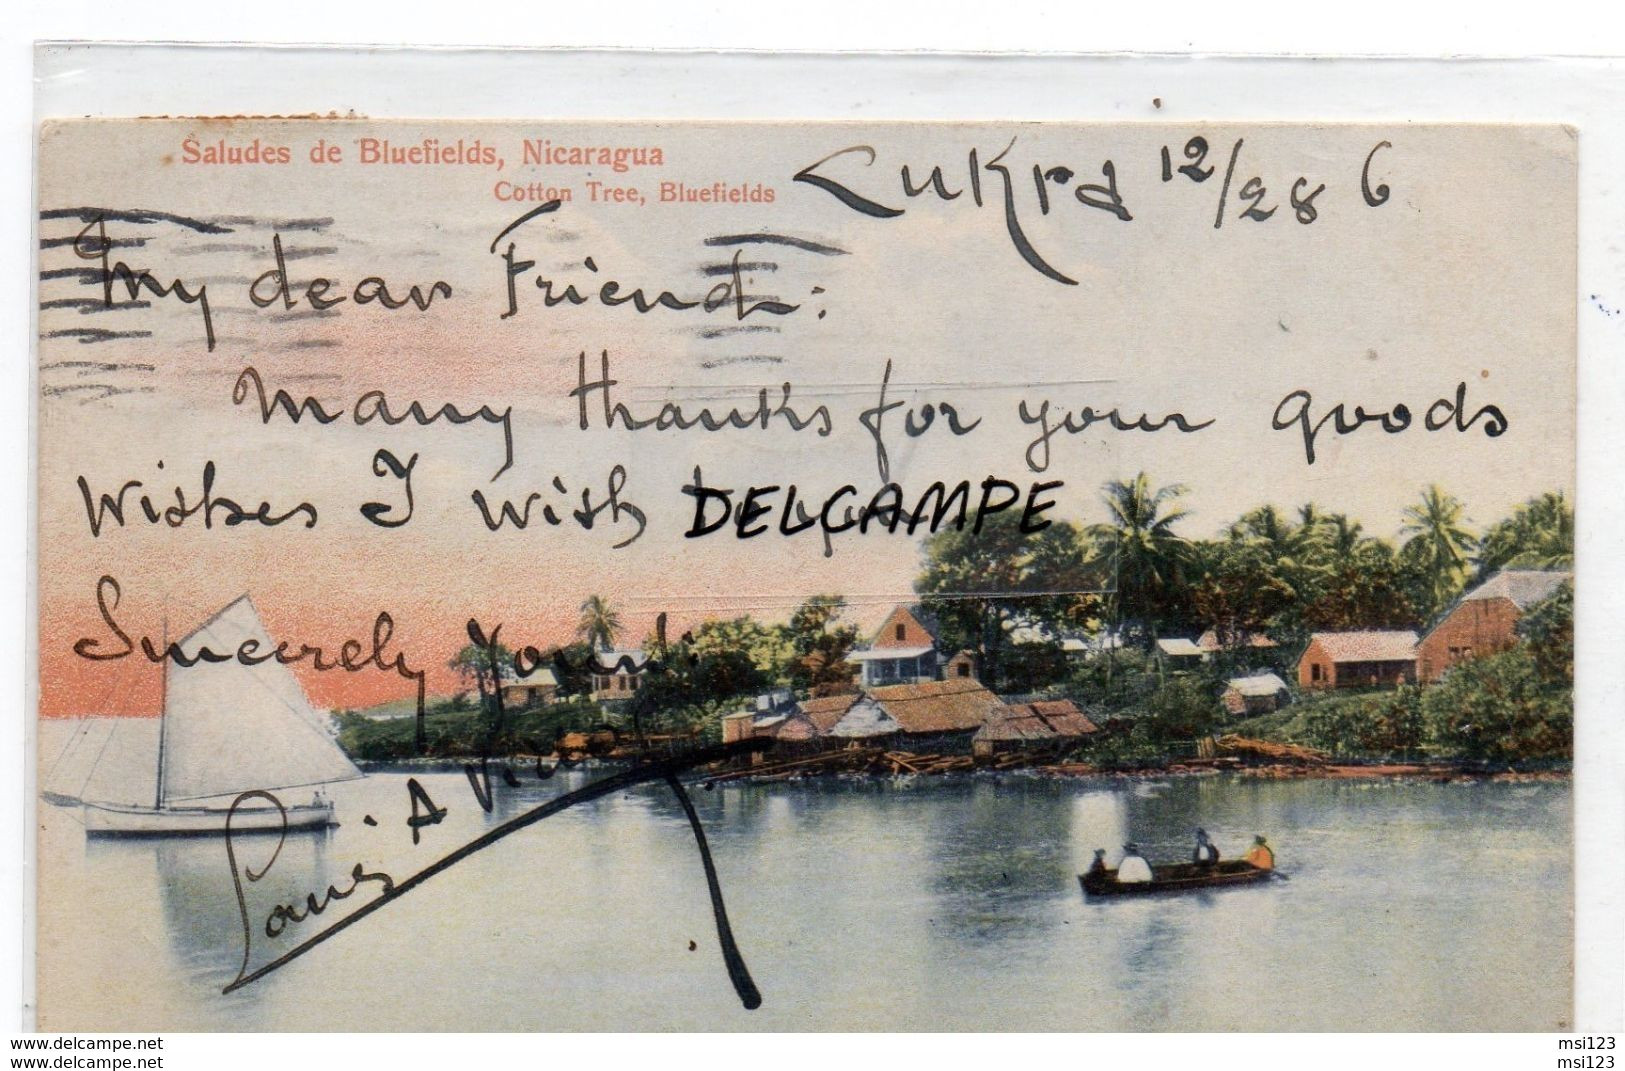 Saludes de Bluefields, Nicaragua
Cotton Tree, Bluefields
Cukra 12/28 6
My dear Friend:
Many thanks for your goods
Wishes I wish
DELCAMPE
Sincerely Yours
Louis A
www.delcampe.net
www.delcampe.net
msi123
msi123